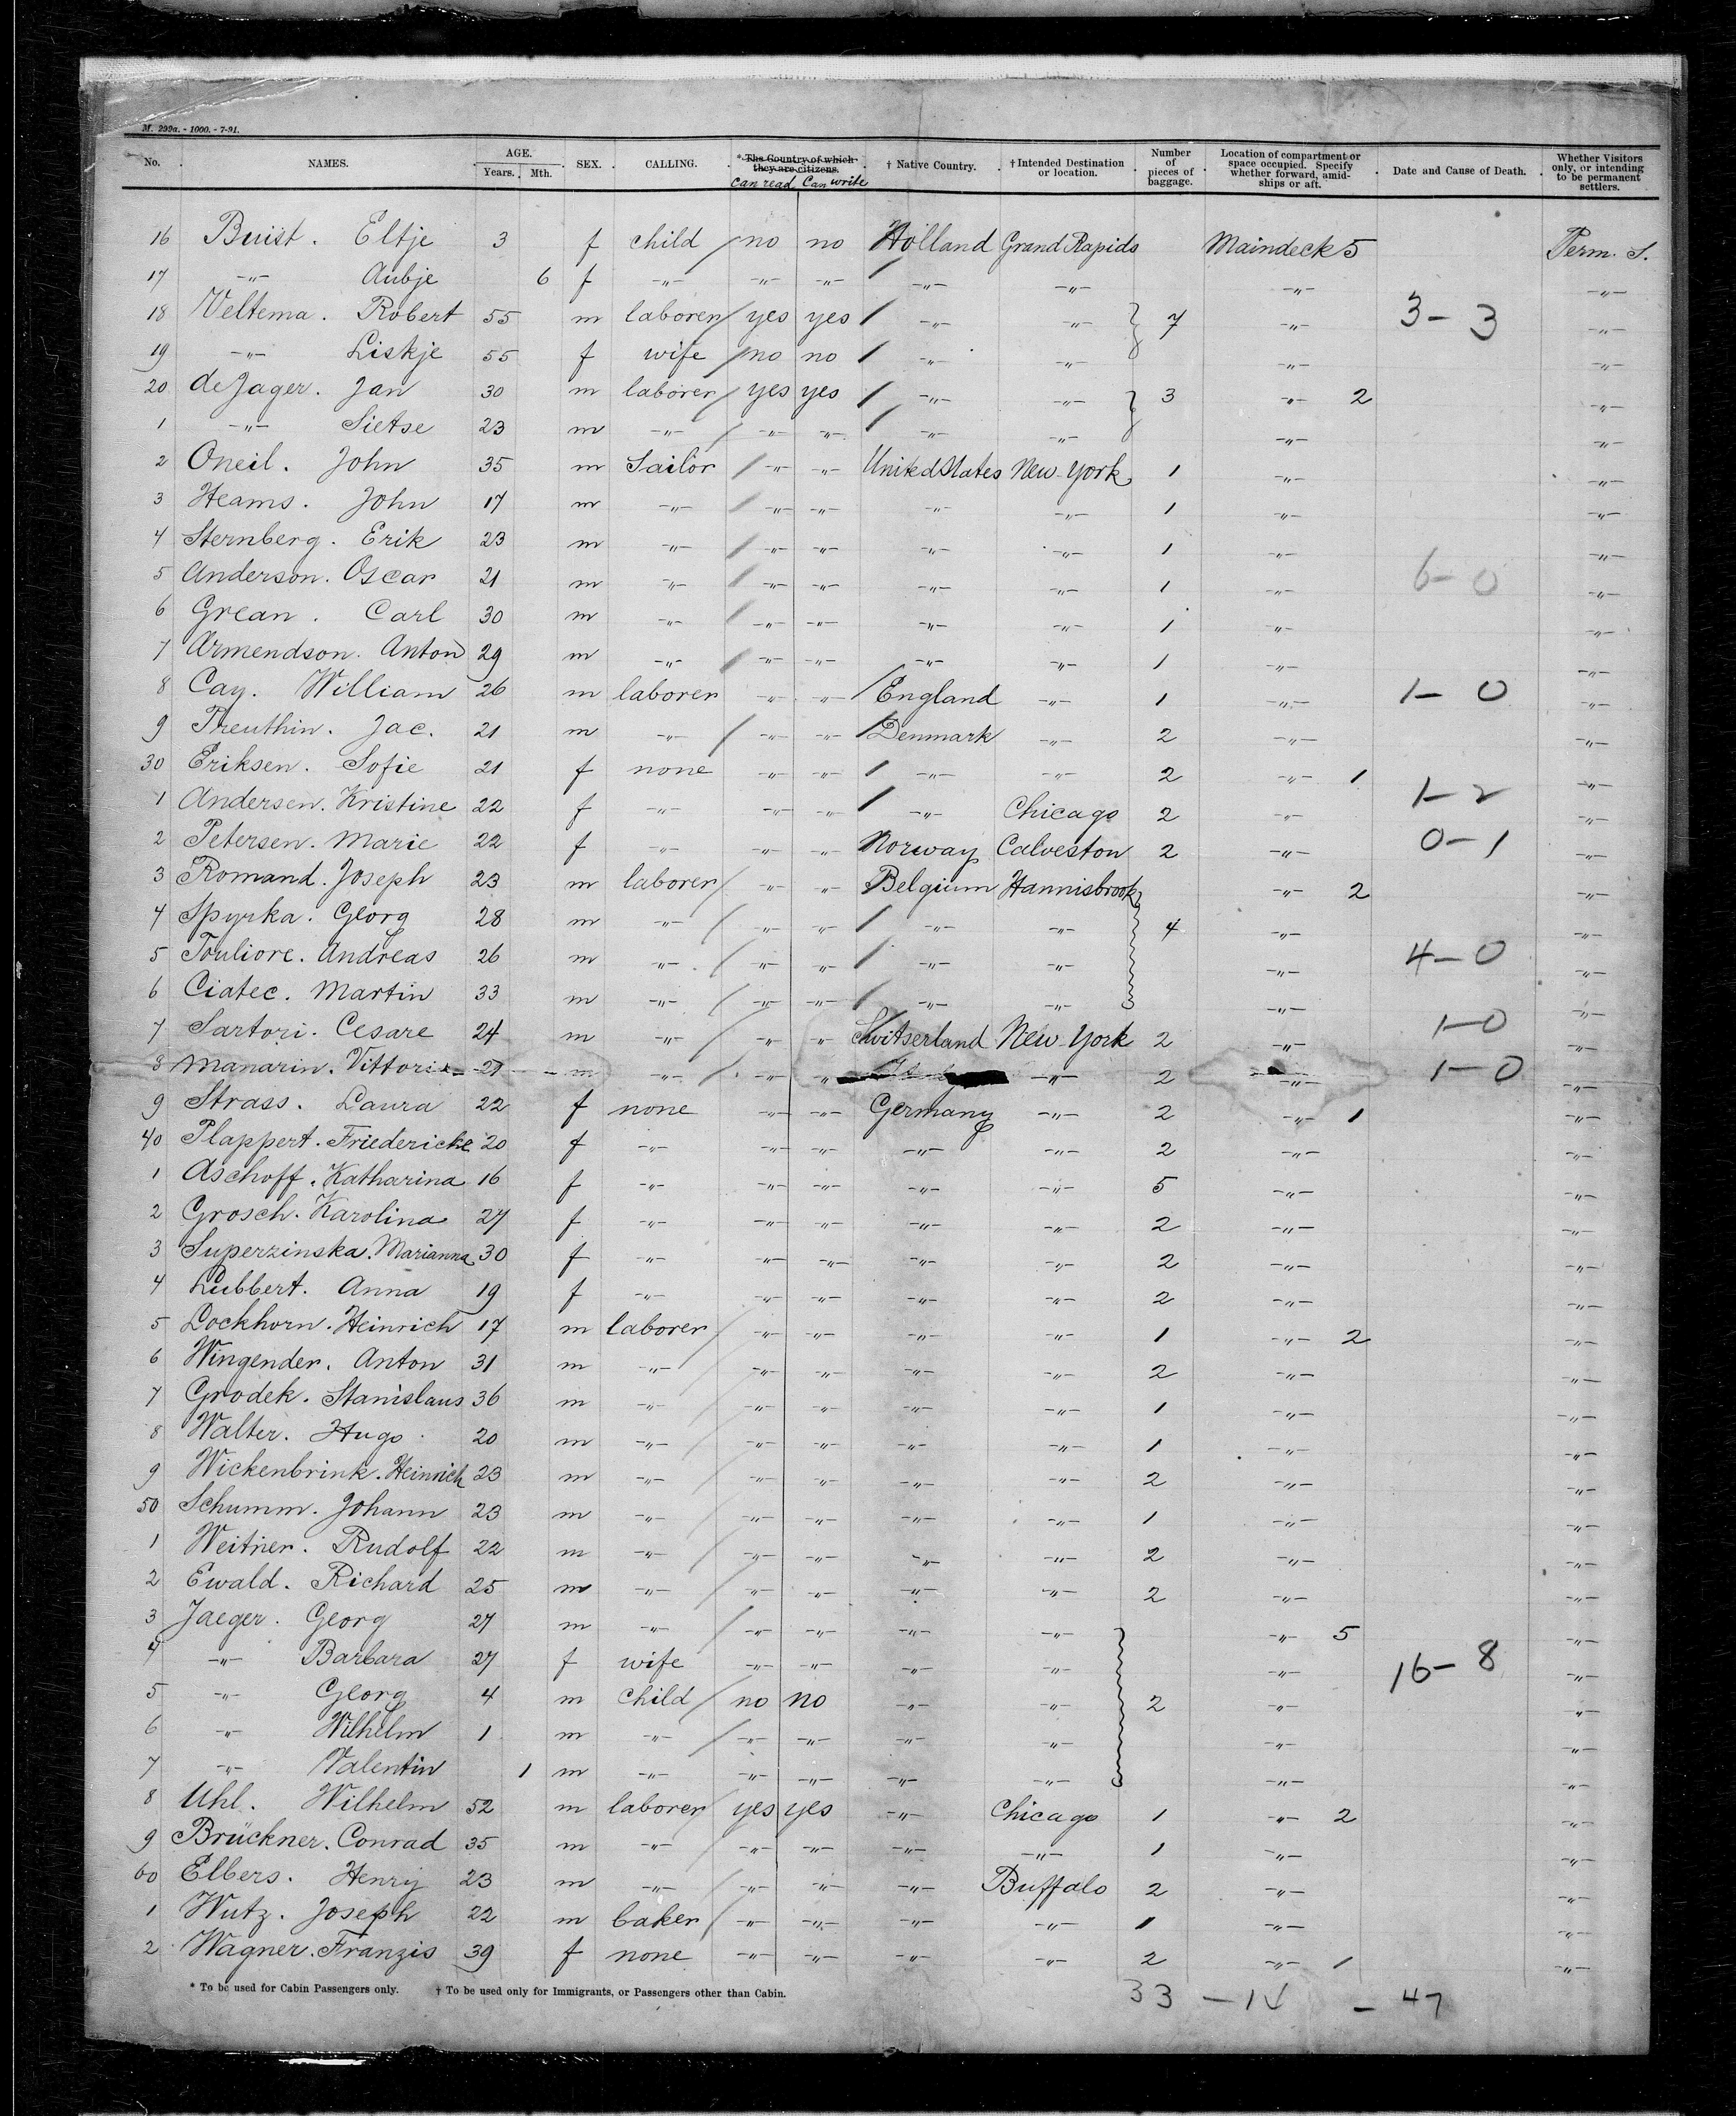 M. 299a. - 1000. - 7-91.
No. NAMES. AGE. Years. Mth. SEX. CALLING. * The Country of which they are citizens. Can read Can write † Native Country. † Intended Destination or location. Number of pieces of baggage. Location of compartment or space occupied. Specify whether forward, amidships or aft. Date and Cause of Death. Whether Visitors only, or intending to be permanent settlers.
16 Buist. Eltje 3 f child no no Holland Grand Rapids Maindeck 5 Perm. S.
17 -"- Aubje 6 f -"- -"- -"- / -"- -"- -"- -"-
18 Veltema. Robert 55 m laborer / yes yes / -"- -"- 7 -"- 3-3 -"-
19 -"- Liskje 55 f wife / no no / -"- -"- -"-
20 de Jager. Jan 30 m laborer / yes yes / -"- -"- 3 -"- 2 -"-
1 -"- Sietse 23 m -"- / -"- -"- / -"- -"- -"- -"-
2 Oneil. John 35 m Sailor / -"- -"- United States New-York 1 -"- -"-
3 Heams. John 17 m -"- / -"- -"- -"- -"- 1 -"- -"-
4 Sternberg. Erik 23 m -"- / -"- -"- -"- -"- 1 -"- -"-
5 Anderson. Oscar 21 m -"- / -"- -"- -"- -"- 1 -"- 6-0 -"-
6 Grean. Carl 30 m -"- / -"- -"- -"- -"- 1 -"- -"-
7 Armendson. Anton 29 m -"- / -"- -"- -"- -"- 1 -"- -"-
8 Cay. William 26 m laborer -"- -"- / England -"- 1 -"- 1-0 -"-
9 Treuthin. Jac. 21 m -"- / -"- -"- / Denmark -"- 2 -"- -"-
30 Eriksen. Sofie 21 f none -"- -"- / -"- -"- 2 -"- 1 -"-
1 Andersen. Kristine 22 f -"- -"- -"- / -"- Chicago 2 -"- 1-2 -"-
2 Petersen. Marie 22 f -"- -"- -"- Norway Calveston 2 -"- 0-1 -"-
3 Romand. Joseph 23 m laborer / -"- -"- Belgium Hannisbrook -"- 2 -"-
4 Spyrka. Georg 28 m -"- / -"- -"- / -"- -"- 4 -"- -"-
5 Touliore. Andreas 26 m -"- / -"- -"- / -"- -"- -"- 4-0 -"-
6 Ciatec. Martin 33 m -"- / -"- -"- / -"- -"- -"- -"-
7 Sartori. Cesare 24 m -"- / -"- -"- Switserland New-York 2 -"- 1-0
8 Manarin. Vittori 27 m -"- / -"- -"- -"- 2 -"- 1-0 -"-
9 Strass. Laura 22 f none -"- -"- Germany -"- 2 -"- 1 -"-
40 Plappert. Friedericke 20 f -"- -"- -"- -"- -"- 2 -"- -"-
1 Aschoff. Katharina 16 f -"- -"- -"- -"- -"- 5 -"- -"-
2 Grosch. Karolina 27 f -"- -"- -"- -"- -"- 2 -"- -"-
3 Superzinska. Marianna 30 f -"- -"- -"- -"- -"- 2 -"- -"-
4 Lubbert. Anna 19 f -"- -"- -"- -"- -"- 2 -"- -"-
5 Lockhorn. Heinrich 17 m laborer / -"- -"- -"- -"- 1 -"- 2 -"-
6 Wingender. Anton 31 m -"- / -"- -"- -"- -"- 2 -"- -"-
7 Grodek. Stanislaus 36 m -"- / -"- -"- -"- -"- 1 -"- -"-
8 Walter. Hugo 20 m -"- / -"- -"- -"- -"- 1 -"- -"-
9 Wickenbrink. Heinrich 23 m -"- / -"- -"- -"- -"- 2 -"- -"-
50 Schumm. Johann 23 m -"- / -"- -"- -"- -"- 1 -"- -"-
1 Weitner. Rudolf 22 m -"- / -"- -"- -"- -"- 2 -"- -"-
2 Ewald. Richard 25 m -"- / -"- -"- -"- -"- 2 -"- -"-
3 Jaeger. Georg 27 m -"- / -"- -"- -"- -"- -"- 5 -"-
4 -"- Barbara 27 f wife -"- -"- -"- -"- -"- 16-8 -"-
5 -"- Georg 4 m child / no no -"- -"- 2 -"- -"-
6 -"- Wilhelm 1 m -"- / -"- -"- -"- -"- -"- -"-
7 -"- Valentin 1 m -"- -"- -"- -"- -"- -"- -"-
8 Uhl. Wilhelm 52 m laborer / yes yes -"- Chicago 1 -"- 2 -"-
9 Brückner. Conrad 35 m -"- / -"- -"- -"- -"- 1 -"- -"-
60 Elbers. Henry 23 m -"- / -"- -"- -"- Buffalo 2 -"- -"-
1 Wutz. Joseph 22 m baker / -"- -"- -"- -"- 1 -"- -"-
2 Wagner. Franzis 39 f none -"- -"- -"- -"- 2 -"- 1 -"-
* To be used for Cabin Passengers only. † To be used only for Immigrants, or Passengers other than Cabin.
33 - 14 - 47